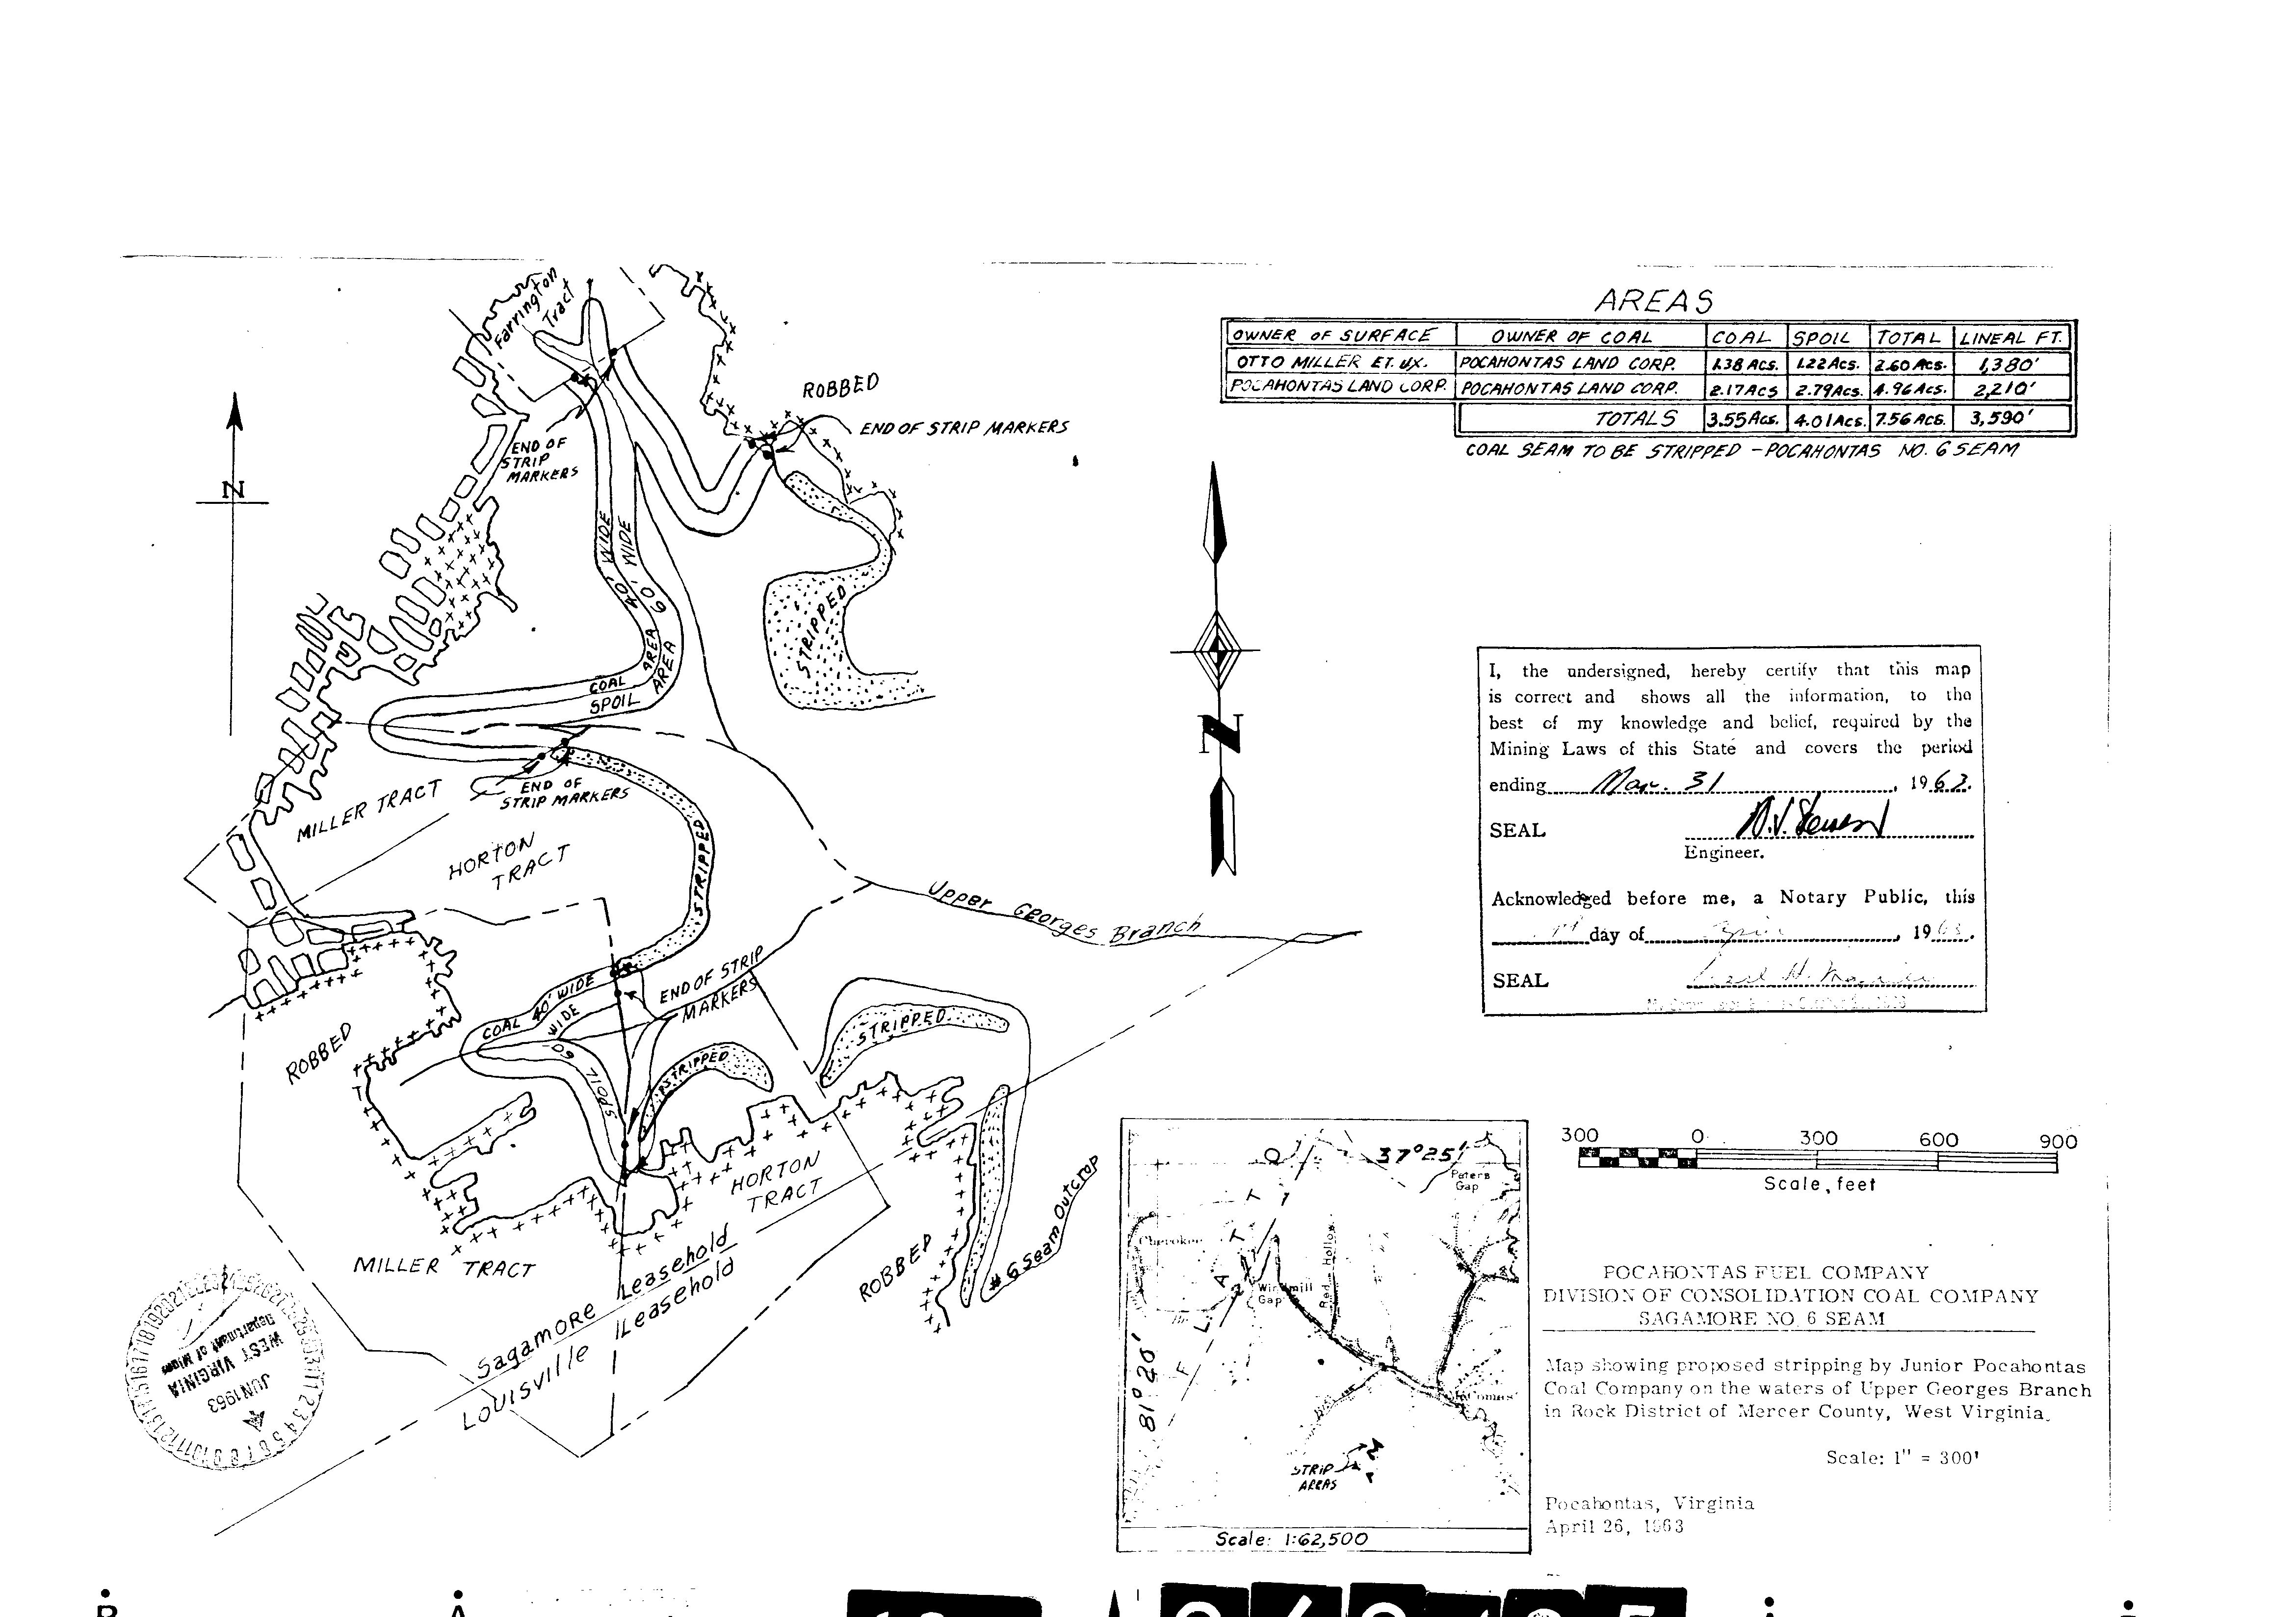 Farrington
Tract
ROBBED
END OF STRIP MARKERS
END OF
STRIP
MARKERS
N
40' WIDE
60' WIDE
STRIPPED
COAL AREA
SPOIL AREA
END OF
STRIP MARKERS
MILLER TRACT
HORTON
TRACT
STRIPPED
Upper Georges Branch
END OF STRIP
MARKERS
COAL 40' WIDE
SPOIL 60' WIDE
ROBBED
STRIPPED
STRIPPED
HORTON
TRACT
MILLER TRACT
Sagamore Leasehold
Louisville Leasehold
ROBBED
#6 Seam Outcrop
WEST VIRGINIA
Department of Mines
JUN 1963
AREAS
OWNER OF SURFACE OWNER OF COAL COAL SPOIL TOTAL LINEAL FT.
OTTO MILLER ET. UX. POCAHONTAS LAND CORP. 1.38 ACS. 1.22 ACS. 2.60 ACS. 1,380'
POCAHONTAS LAND CORP. POCAHONTAS LAND CORP. 2.17 ACS 2.79 ACS. 4.96 ACS. 2,210'
TOTALS 3.55 ACS. 4.01 ACS. 7.56 ACS. 3,590'
COAL SEAM TO BE STRIPPED - POCAHONTAS NO. 6 SEAM
N
I, the undersigned, hereby certify that this map
is correct and shows all the information, to the
best of my knowledge and belief, required by the
Mining Laws of this State and covers the period
ending Mar. 31, 1963.
SEAL
Engineer.
Acknowledged before me, a Notary Public, this
day of, 1963.
SEAL
37°25'
Peters
Gap
Cherokee
Windmill
Gap
Red Hollow
81°20'
STRIP
AREAS
Scale: 1:62,500
300 0 300 600 900
Scale, feet
POCAHONTAS FUEL COMPANY
DIVISION OF CONSOLIDATION COAL COMPANY
SAGAMORE NO. 6 SEAM
Map showing proposed stripping by Junior Pocahontas
Coal Company on the waters of Upper Georges Branch
in Rock District of Mercer County, West Virginia.
Scale: 1" = 300'
Pocahontas, Virginia
April 26, 1963